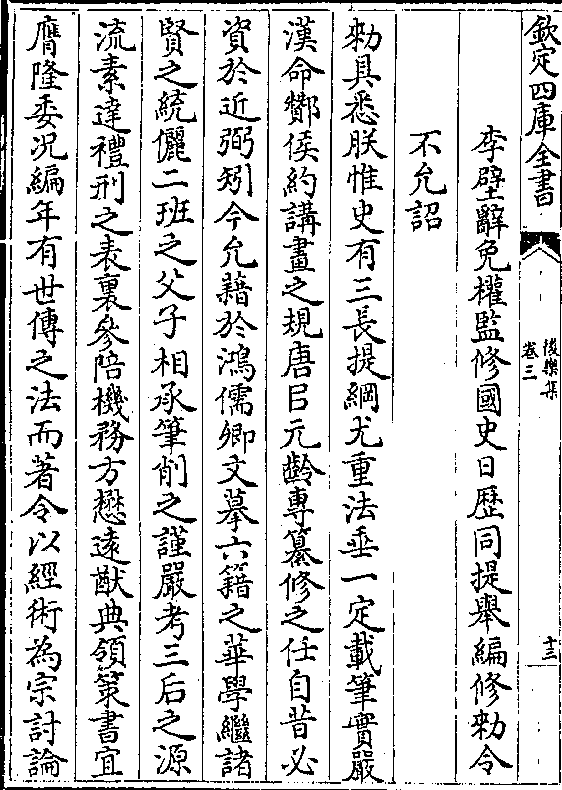 欽定四庫全書
後樂集
卷三
十三
李壁辭免權監修國史日歷同提舉編修勑令
不允詔
勑具悉朕惟史有三長提綱尤重法垂一定載筆實嚴
漢命酇侯約講畫之規唐㠯元齡專纂修之任自昔必
資於近弼矧今允藉於鴻儒卿文摹六籍之華學繼諸
賢之統儷二班之父子相承筆削之謹嚴考三后之源
流素達禮刑之表裏參陪機務方懋遠猷典領策書宜
膺隆委况編年有世傳之法而著令以經術為宗討論